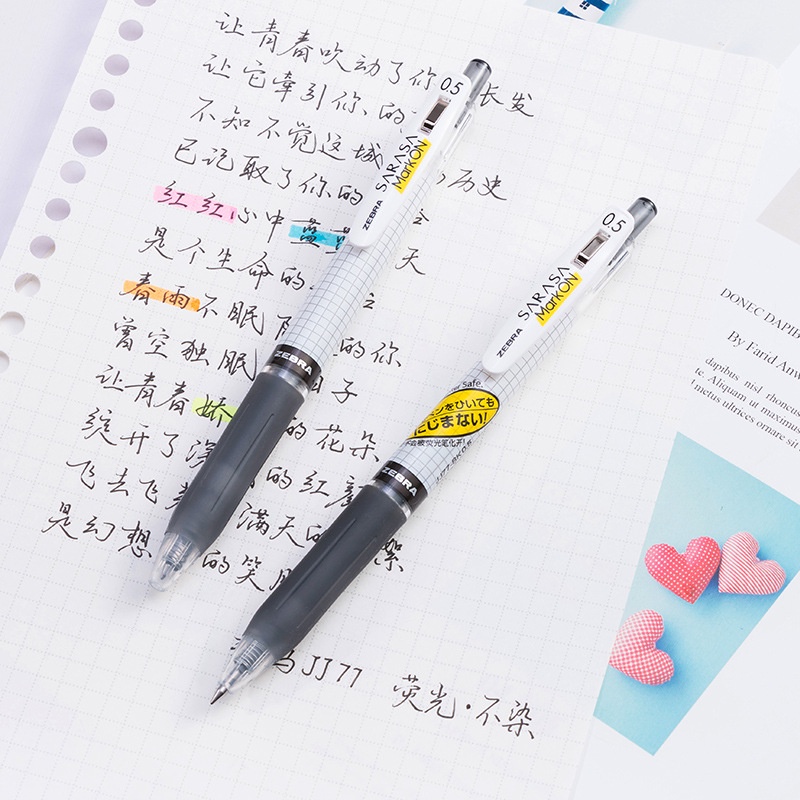 让青春吹动了你 长发
让它牵引你的
不知不觉这城 历史
已记取了你的
红红心中蓝
是个生命的 天
春雨不眠 的你
曾空独眠 日子
让青春娇 的花朵
绽开了深 的红
飞去飞 满天的 絮
是幻想 的笑
JJ77
荧光·不染
0.5
SARASA
MarkON
ZEBRA
ZEBRA
0.5
SARASA
MarkON
ZEBRA
safe.
ンをひいても
にじまない!
ZEBRA
DONEC DAPIB
By Farid Anw
dapibus nisl rhoncus
te. Aliquam ut maximus
metus ultrices ornare sit